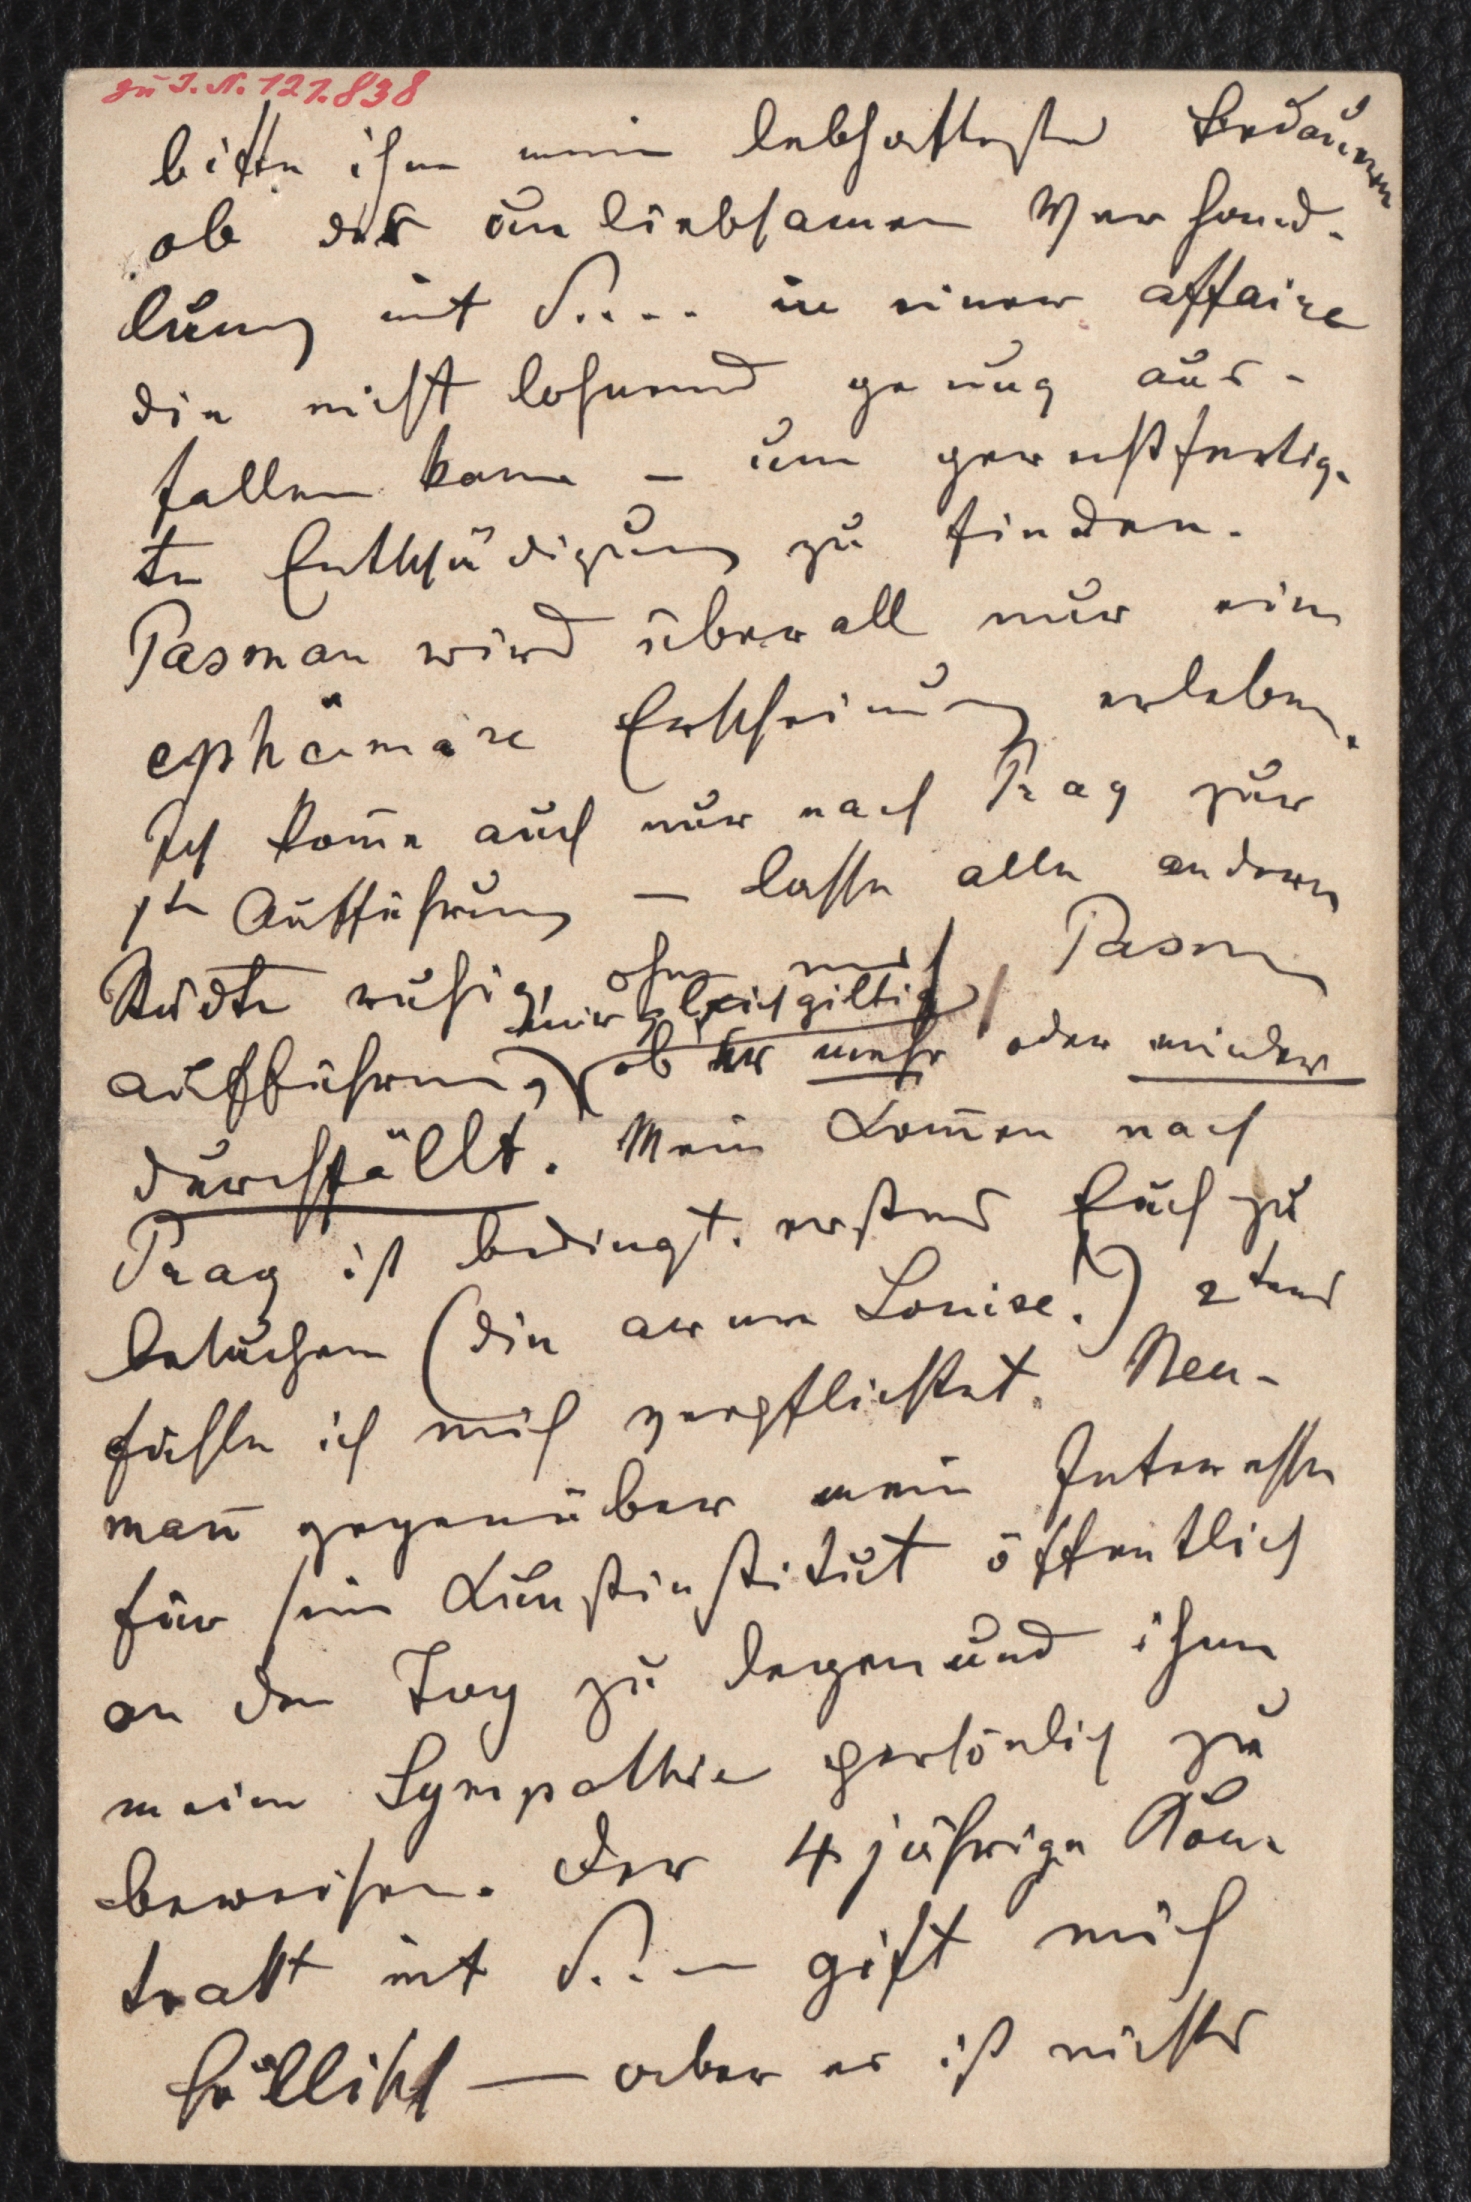 zu I. N. 121.838
bitte ihm mein lebhaftestes Bedauern
ob der unliebsamen Verhand-
lung mit S.... in einer affaire
die nicht lohnend genug aus-
fallen kann – um gerechtfertig-
te Entschädigung zu finden.
Pasman wird überall nur eine
ephämäre Erscheinung erleben.
Ich kom̄e auch nur nach Prag zur
1te Aufführung – lasse alle andern
Städte ruhig, ohne mich Pasm
mir gleichgiltig
aufführen, ob er mehr oder minder
durchfällt. Mein Kom̄en nach
Prag ist bedingt. erstens Euch zu
besuchen (die arme Louise!) 2tens
fühle ich mich verpflichtet. Neu-
man̄ gegenüber mein Interesse
für sein Kunstinstitut öffentlich
an den Tag zu legen und ihm
meine Sympathie persönlich zu
beweisen. Der 4 jährige Kon-
trakt mit S... gift mich
höllisch – aber es ist nichts